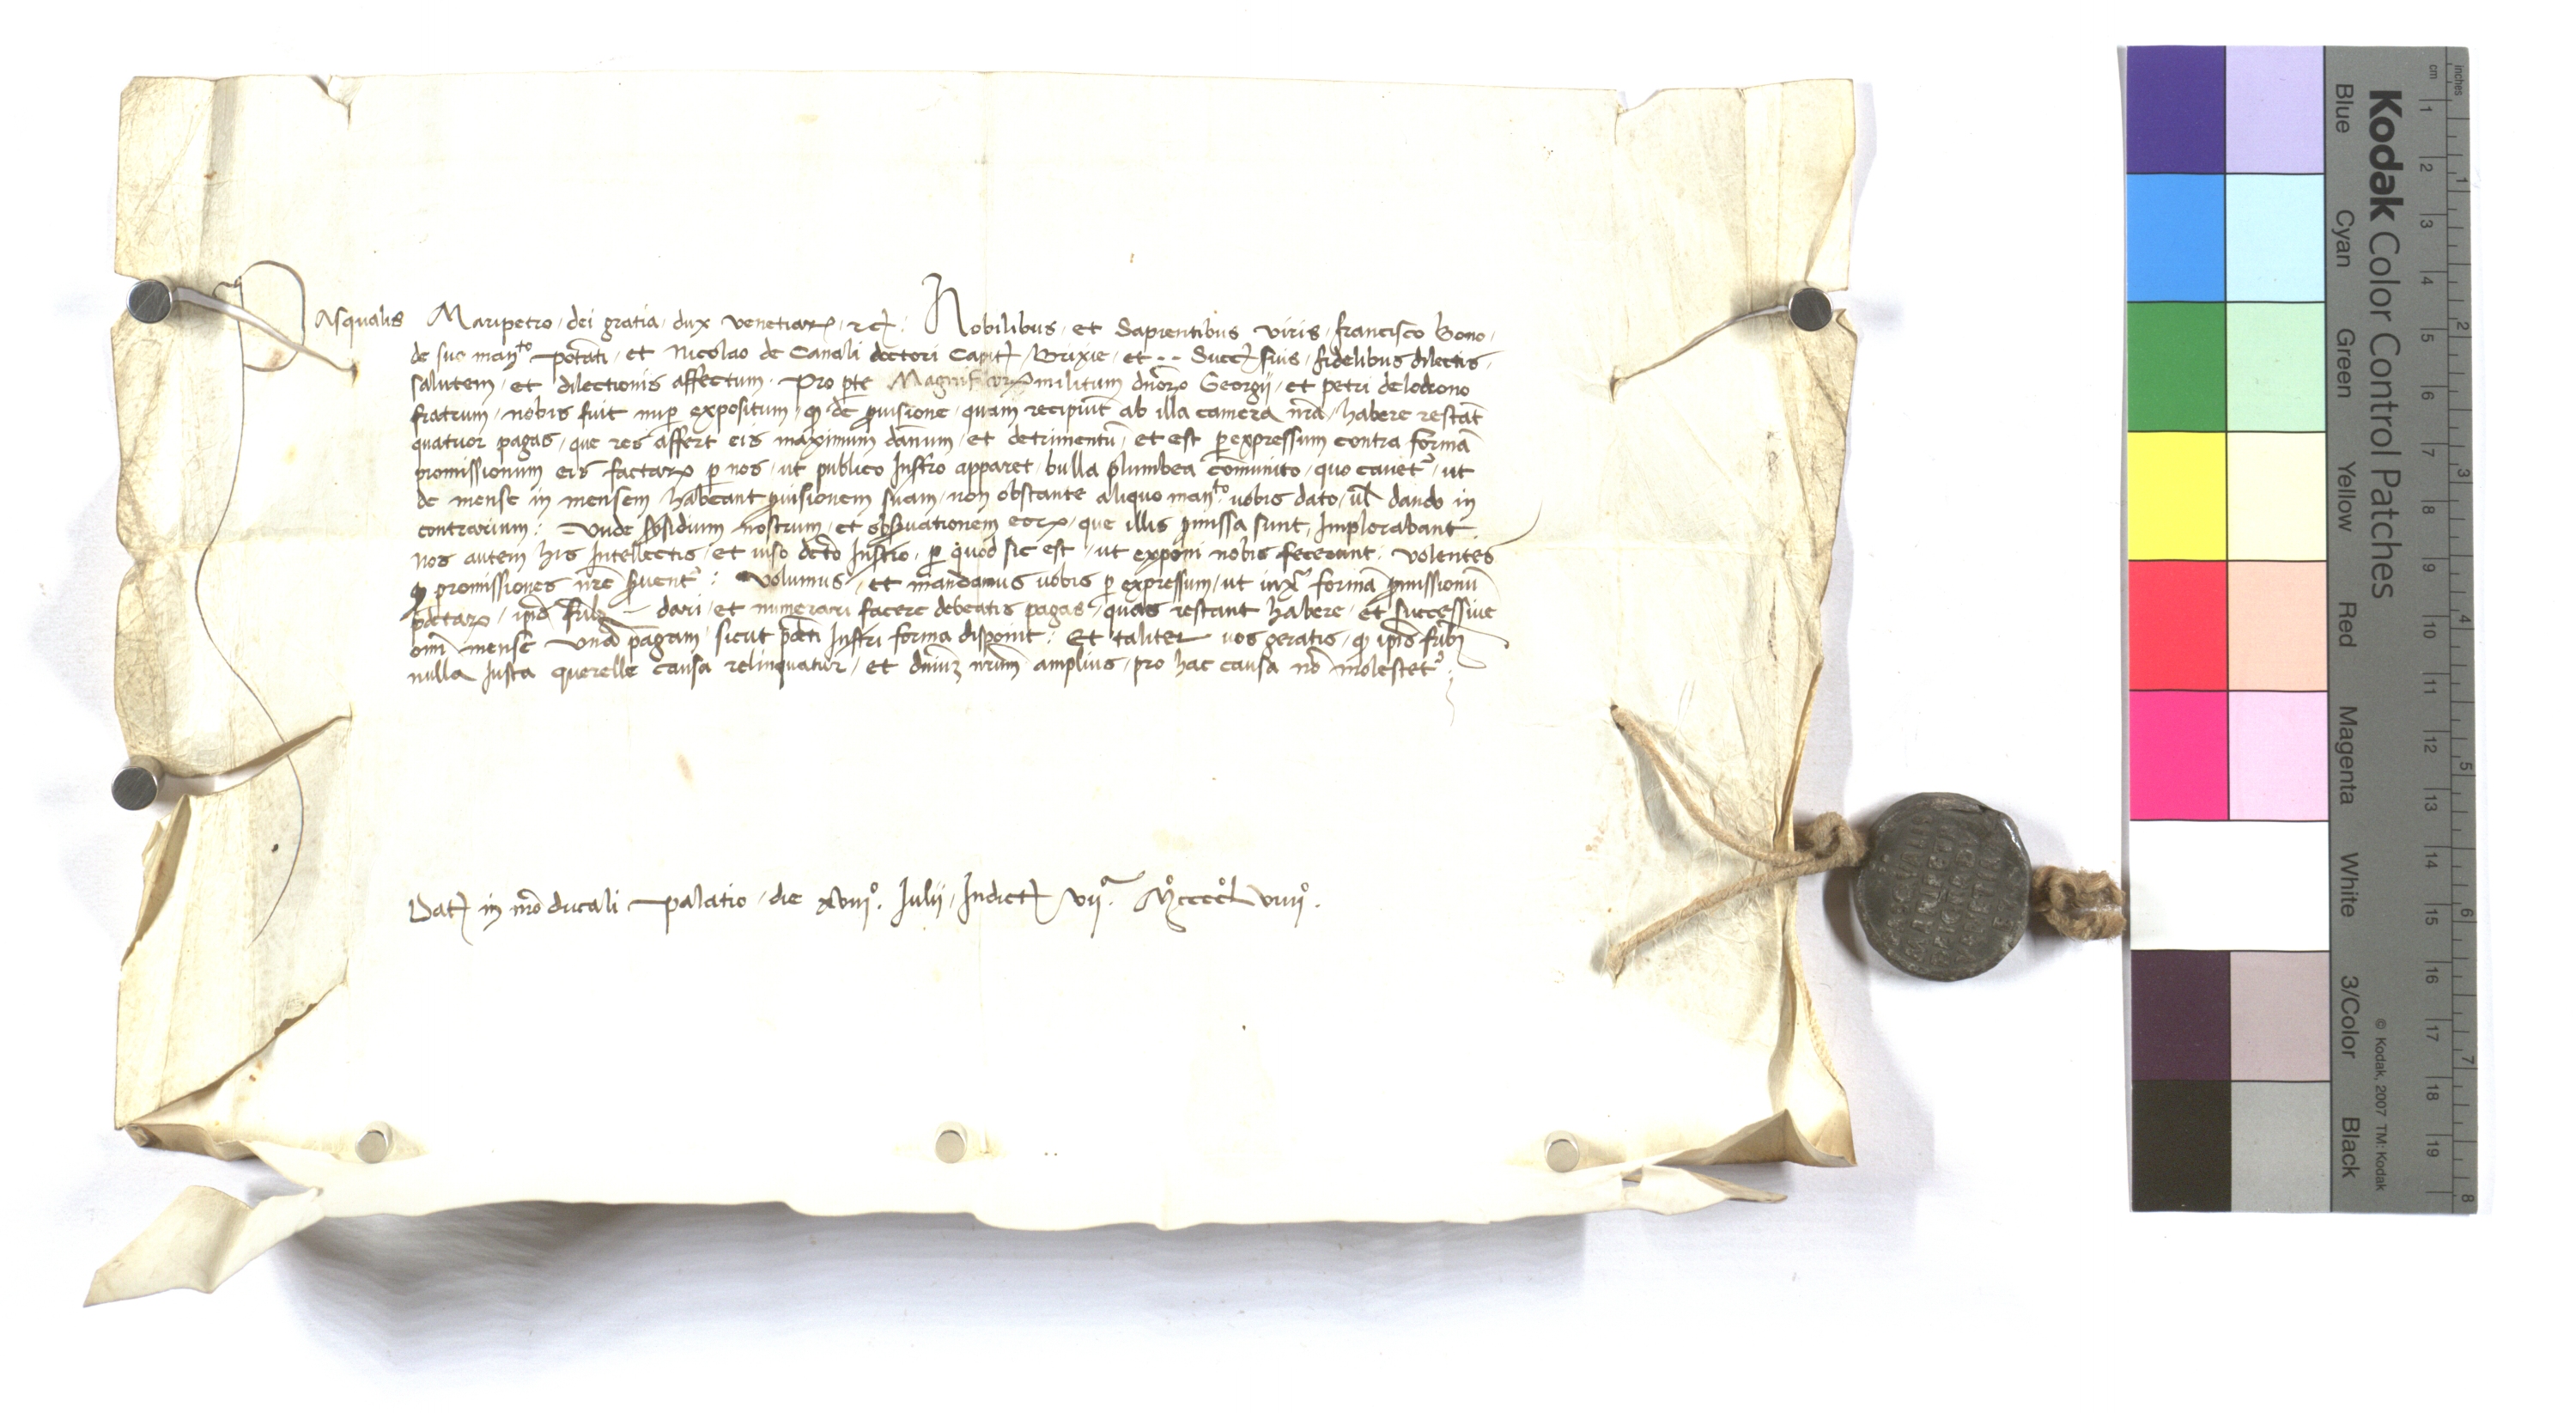 Pasqualis Maripetro dei gratia dux venetiarꝝ ⁊cꝭ. Nobilibus et Sapientibus viris francisco Bono
de suo manto potati et Nicolao de Canali doctori Capitꝭ Brixie et .. Succꝭ suis fidelibus dilectis
salutem et dilectionis affectum. Pro pte Magnificorꝝ militum dnorꝝ Georgij et petri de lodrono
fratrum nobis fuit nup expositum ꝙ de ꝓuisione quam recipiut ab illa camera nra habere restat
quatuor pagas que res affert eis maximum danum et detrimentu et est ꝑ expressum contra forma
promissionum eis factarꝝ ꝑ nos ut publico Instro apparet bulla plumbea comunito quo cauet ut
de mense in mensem habeant ꝓuisionem suam non obstante aliquo manto uobis dato ul dando in
contrarium: Unde sbsidium nostrum et obseruationem eorꝝ que illis ꝓmissa sunt Implorabant
Nos autem his Intellectis et uiso dcto Instro ꝑ quod sic est ut exponi nobis fecerunt volentes
ꝙ promissiones nre seruent: Volumus et mandamus uobis ꝑ expressum ut iuxa forma ꝓmissionu
pdctarꝝ ipis frib dari et numerari facere debeatis pagas quas restant habere et successiue
omi mense una pagam sicut pdcti Instri forma disponit: Et taliter uos geratis ꝙ ipis frib
nulla Justa querelle causa relinquatur et dniuꝫ nrum amplius pro hac causa no molestet
Datꝭ in nro ducali palatio die xviiiº. Julii Indictꝭ viiª. Mºccccºlviiiiº.
Kodak Color Control Patches
Blue Cyan Green Yellow Red Magenta White 3/Color Black
© Kodak, 2007 TM: Kodak
cm 1 2 3 4 5 6 7 8 9 10 11 12 13 14 15 16 17 18 19
inches 1 2 3 4 5 6 7 8